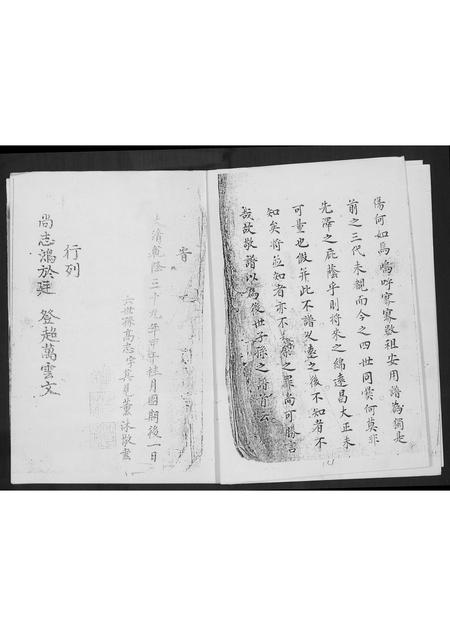 傷何如焉嗚呼寥寥數祖安用譜為獨是
前之三代未親而今之四世同爨何莫非
先澤之庇蔭乎則將來之綿遠昌大正未
可量也倘并此不譜久遠之後不知者不
知矣將並知者亦不之罪尚可勝言
哉故敬譜以為後世子孫之譜首云
大清乾隆三十九年甲午年桂月國期後一日
六世孫高志字薰沐敬書
行列
尚志鴻於廷 登超萬雲文